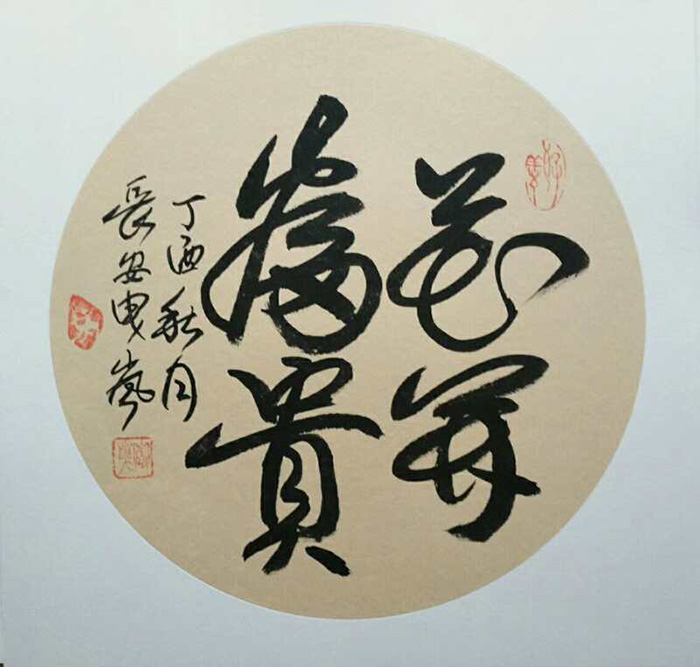 花開
富貴
丁酉秋月
長安曳嵐